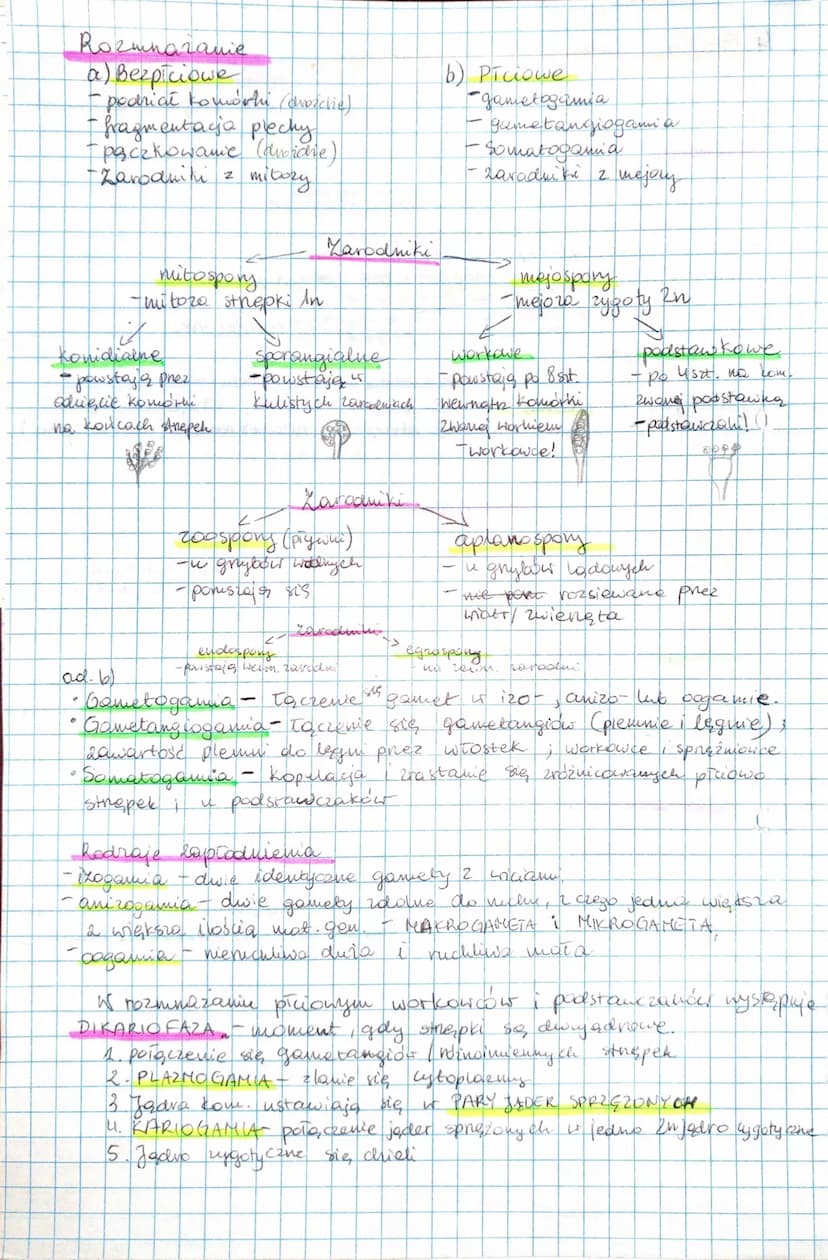 Rozmnażanie
a) Bezpłciowe
- podział komórki (drożdże)
- fragmentacja plechy
- pączkowanie (drożdże)
- Zarodniki z mitozy
b) Płciowe
- gametogamia
- gametangiogamia
- somatogamia
- zarodniki z mejozy
Zarodniki
mitospory
- mitoza strzępki 1n
mejospory
- mejoza zygoty 2n
konidialne
- powstają przez
odcięcie komórki
na końcach strzępek
sporangialne
- powstają w
kulistych zarodniach
workowe
- powstają po 8 szt.
wewnątrz komórki
zwanej workiem
- workowce!
podstawkowe
- po 4 szt. na kom.
zwanej podstawką
- podstawczaki!
Zarodniki
zoospory (pływki)
- u grzybów wodnych
- poruszają się
aplanospory
- u grzybów lądowych
- nie por rozsiewane przez
wiatr/ zwierzęta
Zarodniki
endospory
- powstają wewn. zarodni
egzospory
- na zewn. zarodni
ad. b)
• Gametogamia - łączenie się gamet w izo-, anizo- lub oogamie.
• Gametangiogamia - łączenie się gametangiów (plemnie i lęgnie);
zawartość plemni do lęgni przez włostek ; workowce i sprzężniowce
• Somatogamia - kopulacja i zrastanie się zróżnicowanych płciowo
strzępek ; u podstawczaków
Rodzaje zapłodnienia
- izogamia - dwie identyczne gamety z wiciami,
- anizogamia - dwie gamety zdolne do ruchu, z czego jedna większa
z większą ilością mat. gen. - MAKROGAMETA i MIKROGAMETA,
- oogamia - nieruchliwa duża i ruchliwa mała
W rozmnażaniu płciowym workowców i podstawczaków występuje
DIKARIOFAZA - moment, gdy strzępki są dwujądrowe.
1. połączenie się gametangiów / różnoimiennych strzępek
2. PLAZMOGAMIA - zlanie się cytoplazmy
3 Jądra kom. ustawiają się w PARY JĄDER SPRZĘŻONYCH
4. KARIOGAMIA - połączenie jąder sprzężonych w jedno 2n jądro zygotyczne
5. Jądro zygotyczne się dzieli